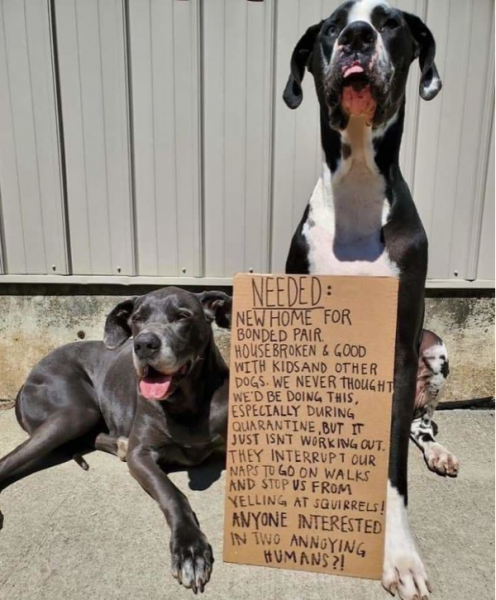 NEEDED:
NEW HOME FOR
BONDED PAIR.
HOUSEBROKEN & GOOD
WITH KIDS AND OTHER
DOGS. WE NEVER THOUGHT
WE'D BE DOING THIS,
ESPECIALLY DURING
QUARANTINE, BUT IT
JUST ISN'T WORKING OUT.
THEY INTERRUPT OUR
NAPS TO GO ON WALKS
AND STOP US FROM
YELLING AT SQUIRRELS!
ANYONE INTERESTED
IN TWO ANNOYING
HUMANS?!